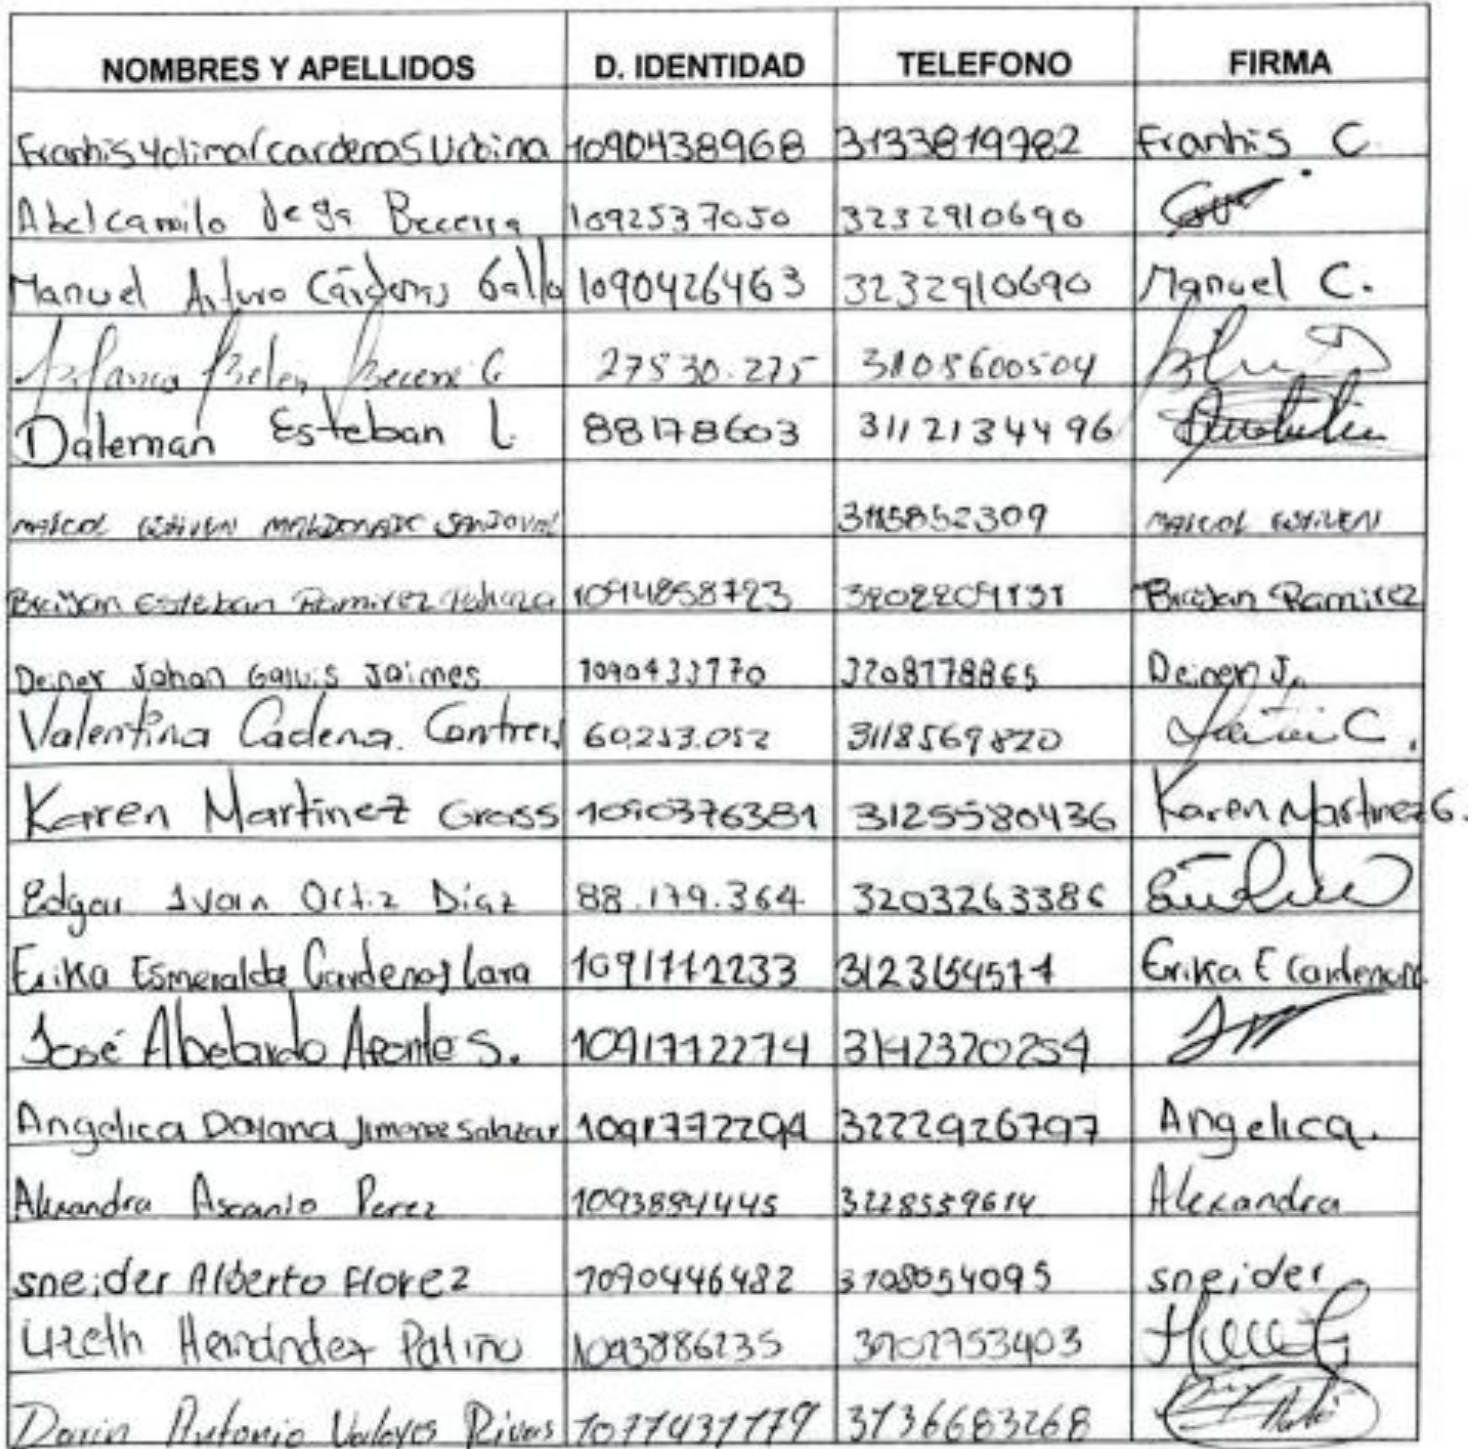 NOMBRES Y APELLIDOS D. IDENTIDAD TELEFONO FIRMA
Franhis Yolimar cardenas Urbina 1090438968 3133819782 Franhis C.
Abel camilo Vega Becerra 1092537050 3232910690
Manuel Arturo Cárdenas Gallo 1090426463 3232910690 Manuel C.
Blanca Belen Becerra G 27530.275 3108600504
Daleman Esteban L. 88178603 3112134496
MAICOL ESTIVEN MALDONADO SANDOVAL 3115852309 MAICOL ESTIVEN
Braijan Esteban Ramirez 1094858723 Braijan Ramirez
Deiner Johan Galvis Jaimes 1090433770 3208778865 Deiner J.
Valentina Cadena. Contrera 60253.052 3118569820
Karen Martinez Grass 1090376381 3125580436 Karen Martinez G.
Edgar Ivan Ortiz Diaz 88.179.364 3203263386
Erika Esmeralda Cardenas Lara 1091772233 3123154571 Erika E Cardenas
José Abelardo Aponte S. 1091772274 3142320254
Angelica Dayana Jimenez Salazar 1091772294 3222926797 Angelica.
Alexandra Ascanio Perez 1093884445 3228559614 Alexandra
sneider Alberto Florez 1090446482 3108054095 sneider
Lizeth Hernández Patiño 1093886235 3202753403
Darin Antonio Valoyes Rivas 1077431779 3136683268